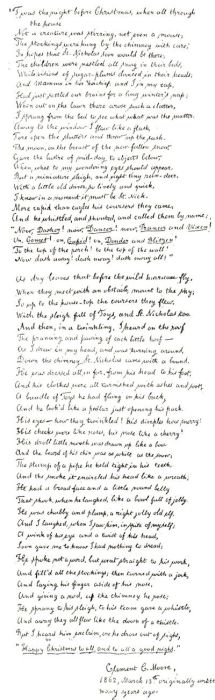 'Twas the night before Christmas, when all through
the house
Not a creature was stirring, not even a mouse;
The stockings were hung by the chimney with care,
In hopes that St. Nicholas soon would be there;
The children were nestled all snug in their beds,
While visions of sugar-plums danced in their heads;
And Mamma in her 'kerchief, and I in my cap,
Had just settled our brains for a long winter's nap;
When out on the lawn there arose such a clatter,
I sprang from the bed to see what was the matter.
Away to the window I flew like a flash,
Tore open the shutters and threw up the sash.
The moon, on the breast of the new-fallen snow
Gave the lustre of mid-day to objects below,
When, what to my wondering eyes should appear,
But a miniature sleigh, and eight tiny rein-deer,
With a little old driver, so lively and quick,
I knew in a moment it must be St. Nick.
More rapid than eagles his coursers they came,
And he whistled, and shouted, and called them by name;
"Now, Dasher! now, Dancer! now, Prancer and Vixen!
On, Comet! on, Cupid! on, Donder and Blitzen!
To the top of the porch! to the top of the wall!
Now dash away! dash away! dash away all!"
As dry leaves that before the wild hurricane fly,
When they meet with an obstacle, mount to the sky;
So up to the house-top the coursers they flew,
With the sleigh full of Toys, and St. Nicholas too.
And then, in a twinkling, I heard on the roof
The prancing and pawing of each little hoof—
As I drew in my head, and was turning around,
Down the chimney St. Nicholas came with a bound.
He was dressed all in fur, from his head to his foot,
And his clothes were all tarnished with ashes and soot;
A bundle of Toys he had flung on his back,
And he look'd like a pedlar just opening his pack.
His eyes—how they twinkled! his dimples how merry!
His cheeks were like roses, his nose like a cherry!
His droll little mouth was drawn up like a bow,
And the beard of his chin was as white as the snow;
The stump of a pipe he held tight in his teeth,
And the smoke it encircled his head like a wreath;
He had a broad face and a little round belly
That shook, when he laughed, like a bowl full of jelly.
He was chubby and plump, a right jolly old elf,
And I laughed, when I saw him, in spite of myself;
A wink of his eye and a twist of his head,
Soon gave me to know I had nothing to dread;
He spoke not a word, but went straight to his work,
And fill'd all the stockings; then turned with a jerk,
And laying his finger aside of his nose,
And giving a nod, up the chimney he rose;
He sprang to his sleigh, to his team gave a whistle,
And away they all flew like the down of a thistle.
But I heard him exclaim, ere he drove out of sight,
"Happy Christmas to all, and to all a good night."
Clement C. Moore,
1862, March 13th originally written
many years ago.